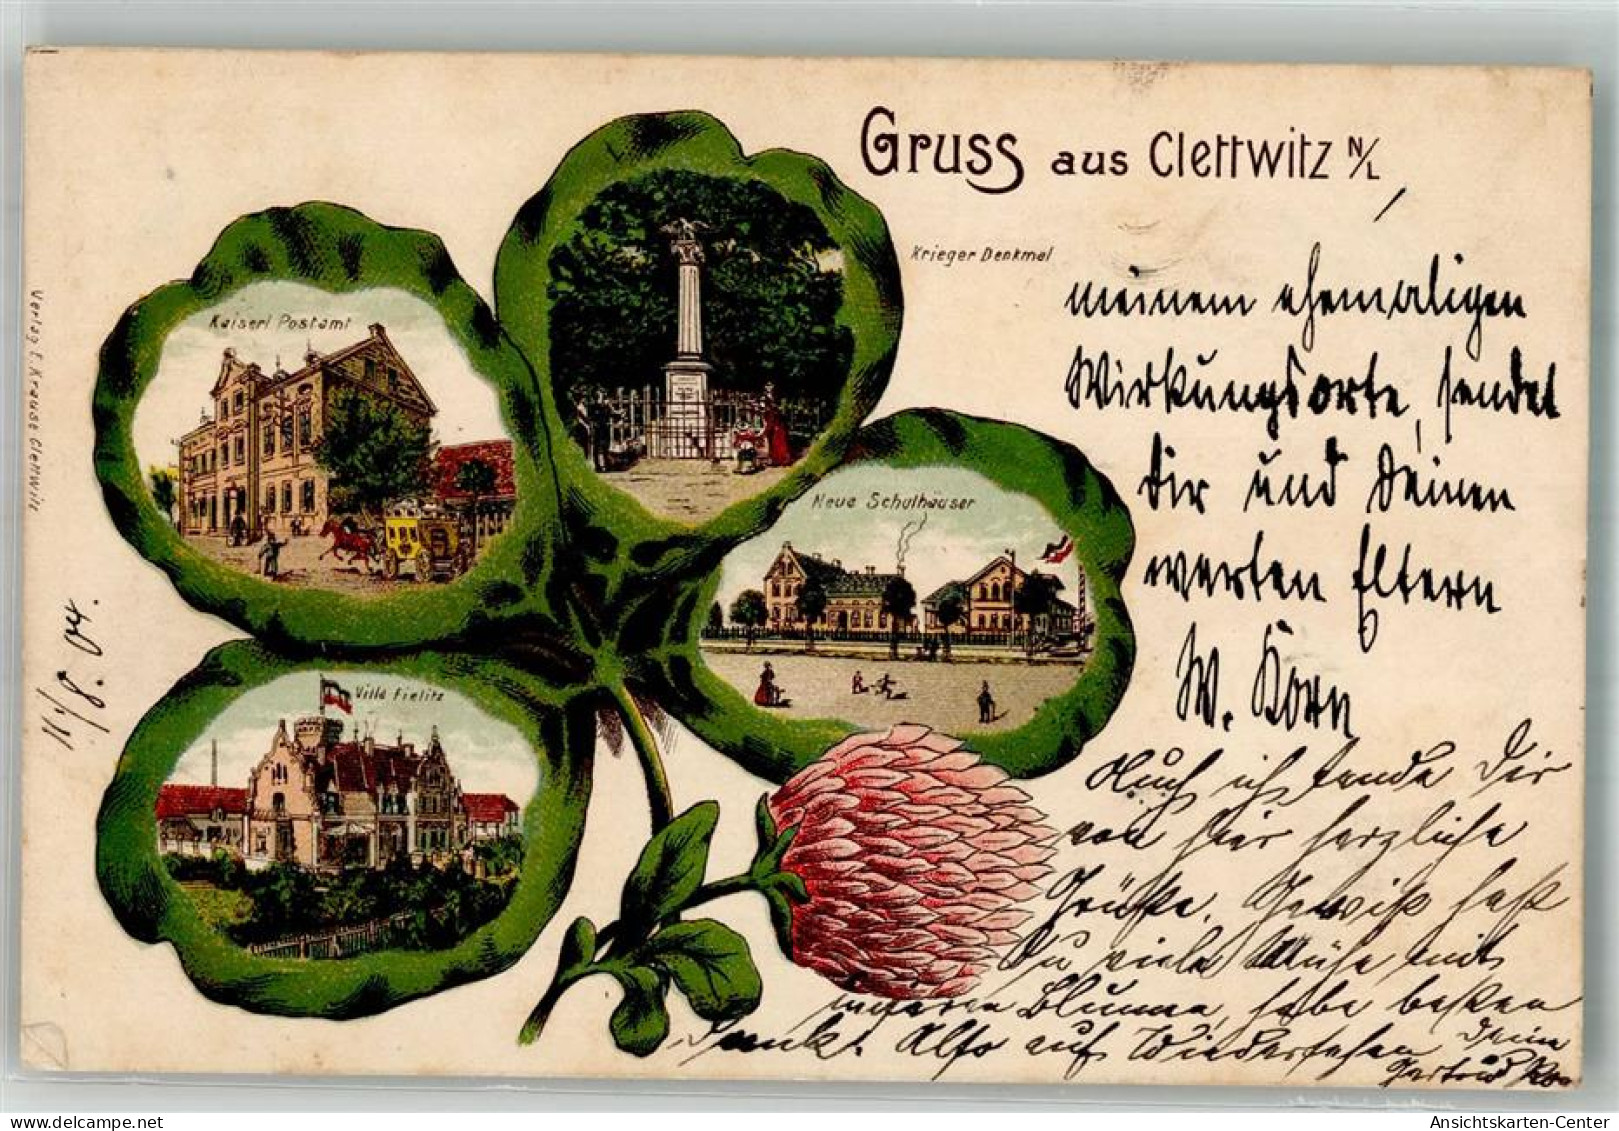 Gruss aus Clettwitz N/L
Krieger Denkmal
Kaiserl Postamt
Neue Schulhäuser
Villa Fielitz
Verlag E. Krause Clettwitz
11/8. 04.
meinem ehemaligen
Wirkungsorte, sendet
Dir und Deinen
werten Eltern
W. Korn
Auch ich sende Dir
von hier herzliche
Grüße. Gewiß hast
Du viele Mühe mit
unseren Blumen, habe besten
Dank. Also auf Wiedersehen Deine
Gertrud
Ansichtskarten-Center